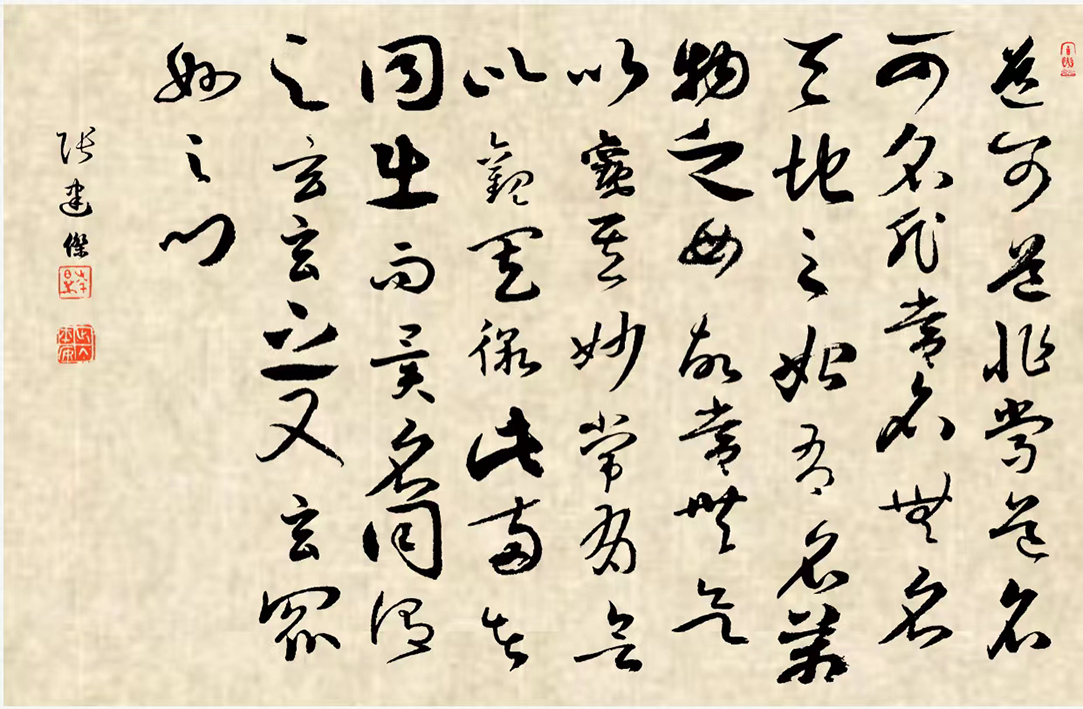 道可道非常道名
可名非常名無名
天地之始有名萬
物之母故常無欲
以觀其妙常有欲
以觀其徼此兩者
同出而異名同謂
之玄玄之又玄眾
妙之門
張建傑